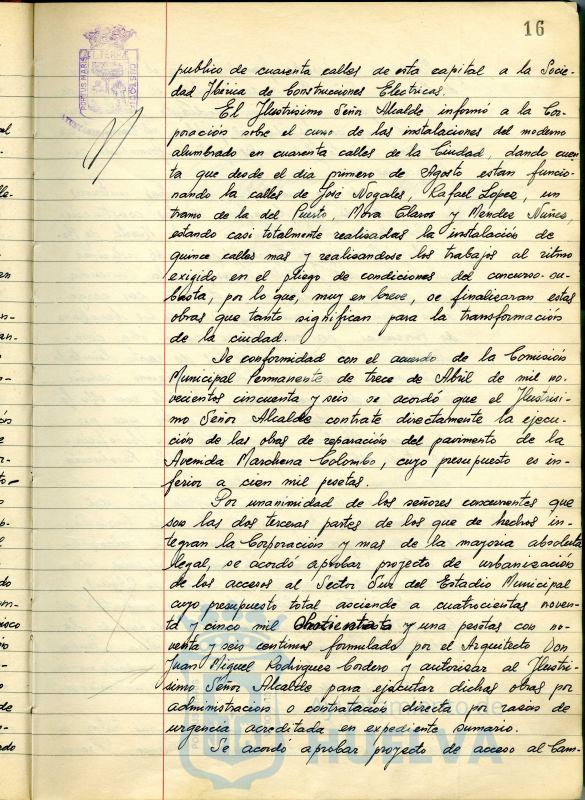 16
publico de cuarenta calles de esta capital a la Socie-
dad Ibérica de Construcciones Electricas.
El Ilustrisimo Señor Alcalde informó a la Cor-
poración sobre el curso de las instalaciones del moderno
alumbrado en cuarenta calles de la Ciudad, dando cuen
ta que desde el dia primero de Agosto estan funcio-
nando la calles de José Nogales, Rafael Lopez, un
tramo de la del Puerto, Mora Claros y Mendez Nuñez,
estando casi totalmente realizadas la instalación de
quince calles mas y realizandose los trabajos al ritmo
exigido en el pliego de condiciones del concurso-su-
basta, por lo que, muy en breve, se finalizaran estas
obras que tanto significan para la transformación
de la ciudad.
De conformidad con el acuerdo de la Comisión
Municipal Permanente de trece de Abril de mil no-
vecientos cincuenta y seis se acordó que el Ilustrisi-
mo Señor Alcalde contrate directamente la ejecu-
ción de las obras de reparación del pavimento de la
Avenida Marchena Colombo, cuyo presupuesto es in-
ferior a cien mil pesetas.
Por unanimidad de los señores concurrentes que
son las dos terceras partes de los que de hechos in-
tegran la Corporación y mas de la mayoria absoluta
legal, se acordó aprobar proyecto de urbanización
de los accesos al Sector Sur del Estadio Municipal
cuyo presupuesto total asciende a cuatrocientas noven-
ta y cinco mil y una pesetas con no-
venta y seis centimos formulado por el Arquitecto Don
Juan Miguel Rodriguez Cordero y autorizar al Ilustri-
simo Señor Alcalde para ejecutar dichas obras por
administración o contratación directa por razon de
urgencia acreditada en expediente sumario.
Se acordó aprobar proyecto de acceso al Cam-
HUELVA